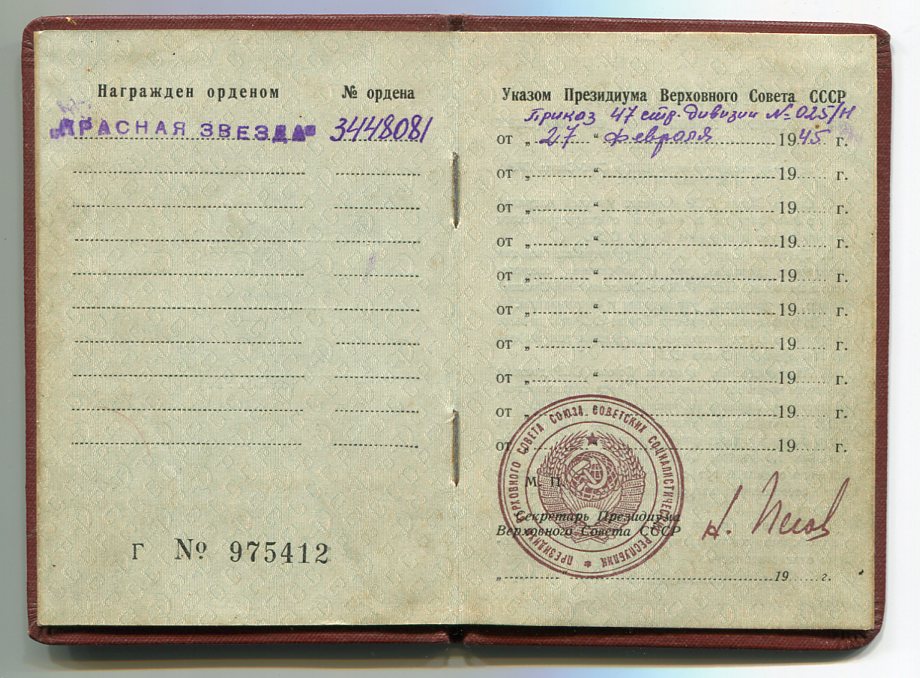 Награжден орденом
№ ордена
„КРАСНАЯ ЗВЕЗДА"
3448081
Г № 975412
Указом Президиума Верховного Совета СССР
Приказ 47 стр. дивизии № 025/н
от „ 27 “ февраля 1945 г.
от „ “ 19 г.
от „ “ 19 г.
от „ “ 19 г.
от „ “ 19 г.
от „ “ 19 г.
от „ “ 19 г.
от „ “ 19 г.
от „ “ 19 г.
от „ “ 19 г.
М. П.
Секретарь Президиума
Верховного Совета СССР
„ “ 19 г.
ПРЕЗИДИУМ ВЕРХОВНОГО СОВЕТА СОЮЗА СОВЕТСКИХ СОЦИАЛИСТИЧЕСКИХ РЕСПУБЛИК